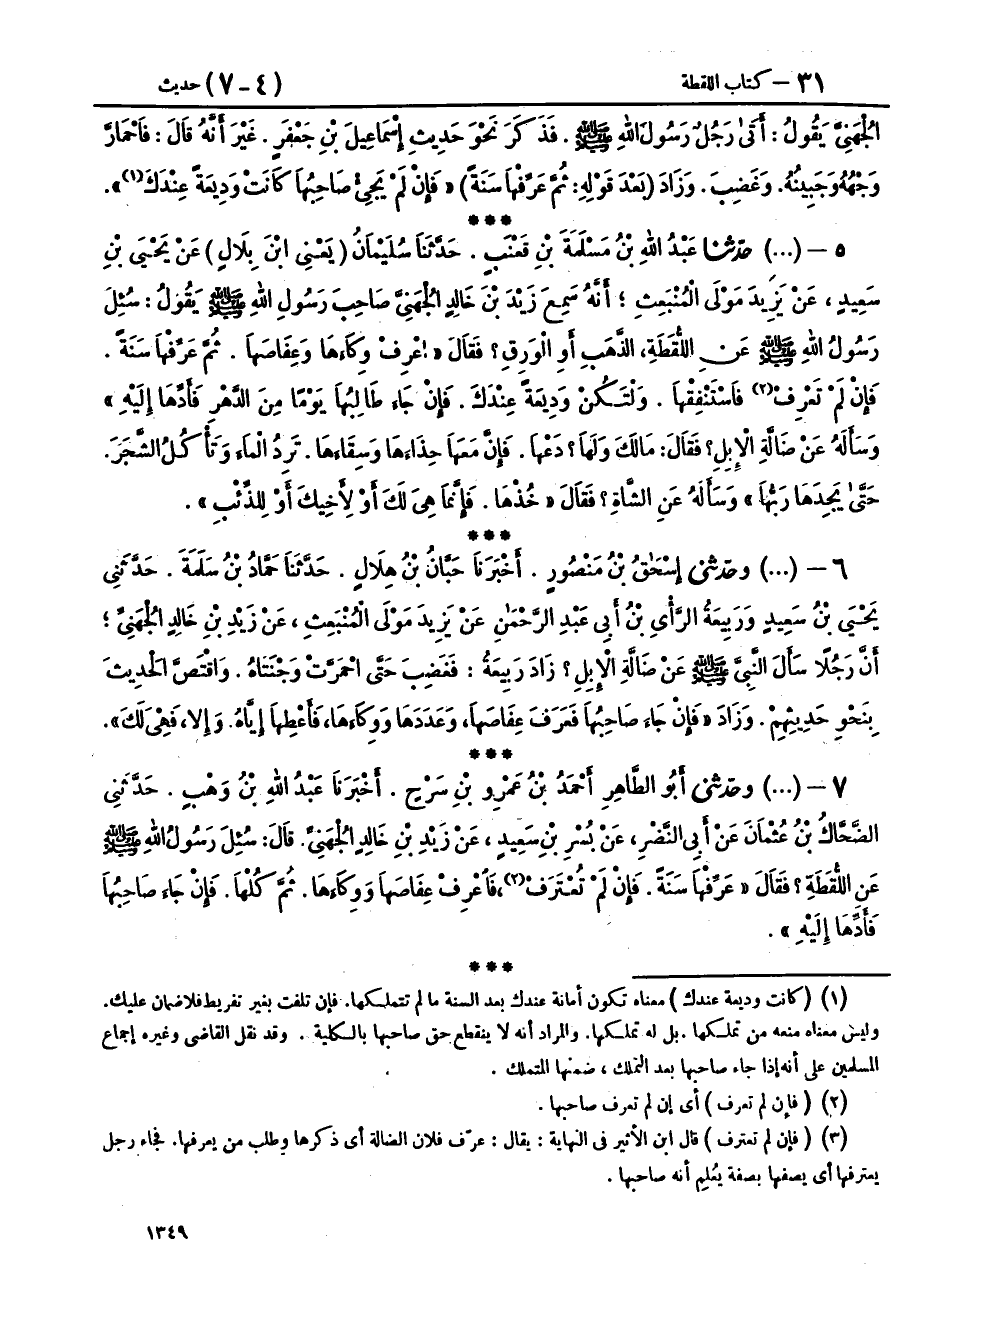 ٣١ – كتاب اللقطة (٤ - ٧) حديث
الْجُهَنِيَّ يَقُولُ : أَتَىٰ رَجُلٌ رَسُولَ اللهِ ﷺ . فَذَكَرَ نَحْوَ حَدِيثِ إِسْمَاعِيلَ بْنِ جَعْفَرٍ . غَيْرَ أَنَّهُ قَالَ : فَاحْمَارَّ
وَجْهُهُ وَجَبِينُهُ. وَغَضِبَ . وَزَادَ (بَعْدَ قَوْلِهِ: ثُمَّ عَرِّفْهَا سَنَةً) « فَإِنْ لَمْ يَجِئْ صَاحِبُهَا كَانَتْ وَدِيعَةً عِنْدَكَ(١)».
***
٥ – (...) حدّثنا عَبْدُ اللهِ بْنُ مَسْلَمَةَ بْنِ قَعْنَبٍ . حَدَّثَنَا سُلَيْمَانُ ( يَعْنِي ابْنَ بِلَالٍ ) عَنْ يَحْيَىٰ بْنِ
سَعِيدٍ ، عَنْ يَزِيدَ مَوْلَى الْمُنْبَعِثِ ؛ أَنَّهُ سَمِعَ زَيْدَ بْنَ خَالِدٍ الْجُهَنِيَّ صَاحِبَ رَسُولِ اللهِ ﷺ يَقُولُ : سُئِلَ
رَسُولُ اللهِ ﷺ عَنِ اللُّقَطَةِ، الذَّهَبِ أَوِ الْوَرِقِ ؟ فَقَالَ « اعْرِفْ وِكَاءَهَا وَعِفَاصَهَا . ثُمَّ عَرِّفْهَا سَنَةً .
فَإِنْ لَمْ تَعْرِفْ(٢) فَاسْتَنْفِقْهَا . وَلْتَكُنْ وَدِيعَةً عِنْدَكَ . فَإِنْ جَاءَ طَالِبُهَا يَوْمًا مِنَ الدَّهْرِ فَأَدِّهَا إِلَيْهِ »
وَسَأَلَهُ عَنْ ضَالَّةِ الْإِبِلِ؟ فَقَالَ: مَالَكَ وَلَهَا؟ دَعْهَا. فَإِنَّ مَعَهَا حِذَاءَهَا وَسِقَاءَهَا. تَرِدُ الْمَاءَ وَتَأْكُلُ الشَّجَرَ.
حَتَّىٰ يَجِدَهَا رَبُّهَا » وَسَأَلَهُ عَنِ الشَّاةِ ؟ فَقَالَ « خُذْهَا . فَإِنَّمَا هِيَ لَكَ أَوْ لِأَخِيكَ أَوْ لِلذِّئْبِ » .
***
٦ – (...) وحدّثني إِسْحَاقُ بْنُ مَنْصُورٍ . أَخْبَرَنَا حَبَّانُ بْنُ هِلَالٍ . حَدَّثَنَا حَمَّادُ بْنُ سَلَمَةَ . حَدَّثَنِي
يَحْيَىٰ بْنُ سَعِيدٍ وَرَبِيعَةُ الرَّأْيِ بْنُ أَبِي عَبْدِ الرَّحْمَٰنِ عَنْ يَزِيدَ مَوْلَى الْمُنْبَعِثِ ، عَنْ زَيْدِ بْنِ خَالِدٍ الْجُهَنِيِّ ؛
أَنَّ رَجُلًا سَأَلَ النَّبِيَّ ﷺ عَنْ ضَالَّةِ الْإِبِلِ ؟ زَادَ رَبِيعَةُ : فَغَضِبَ حَتَّى احْمَرَّتْ وَجْنَتَاهُ . وَاقْتَصَّ الْحَدِيثَ
بِنَحْوِ حَدِيثِهِمْ . وَزَادَ « فَإِنْ جَاءَ صَاحِبُهَا فَعَرَفَ عِفَاصَهَا، وَعَدَدَهَا وَوِكَاءَهَا، فَأَعْطِهَا إِيَّاهُ. وَإِلَّا، فَهْيَ لَكَ».
***
٧ – (...) وحدّثني أَبُو الطَّاهِرِ أَحْمَدُ بْنُ عَمْرِو بْنِ سَرْحٍ . أَخْبَرَنَا عَبْدُ اللهِ بْنُ وَهْبٍ . حَدَّثَنِي
الضَّحَّاكُ بْنُ عُثْمَانَ عَنْ أَبِي النَّضْرِ، عَنْ بُسْرِ بْنِ سَعِيدٍ ، عَنْ زَيْدِ بْنِ خَالِدٍ الْجُهَنِيِّ. قَالَ: سُئِلَ رَسُولُ اللهِ ﷺ
عَنِ اللُّقَطَةِ ؟ فَقَالَ « عَرِّفْهَا سَنَةً . فَإِنْ لَمْ تُعْتَرَفْ(٣)، فَاعْرِفْ عِفَاصَهَا وَوِكَاءَهَا . ثُمَّ كُلْهَا . فَإِنْ جَاءَ صَاحِبُهَا
فَأَدِّهَا إِلَيْهِ » .
***
(١) ( كانت وديعة عندك ) معناه تكون أمانة عندك بعد السنة ما لم تتملكها. فإن تلفت بغير تفريط فلا ضمان عليك.
وليس معناه منعه من تملكها . بل له تملكها. والمراد أنه لا ينقطع حق صاحبها بالكلية . وقد نقل القاضى وغيره إجماع
المسلمين على أنه إذا جاء صاحبها بعد التملك ، ضمنها المتملك .
(٢) ( فإن لم تعرف ) أى إن لم تعرف صاحبها .
(٣) ( فإن لم تعترف ) قال ابن الأثير فى النهاية : يقال : عرّف فلان الضالة أى ذكرها وطلب من يعرفها. فجاء رجل
يعترفها أى يصفها بصفة يُعْلِم أنه صاحبها .
١٣٤٩